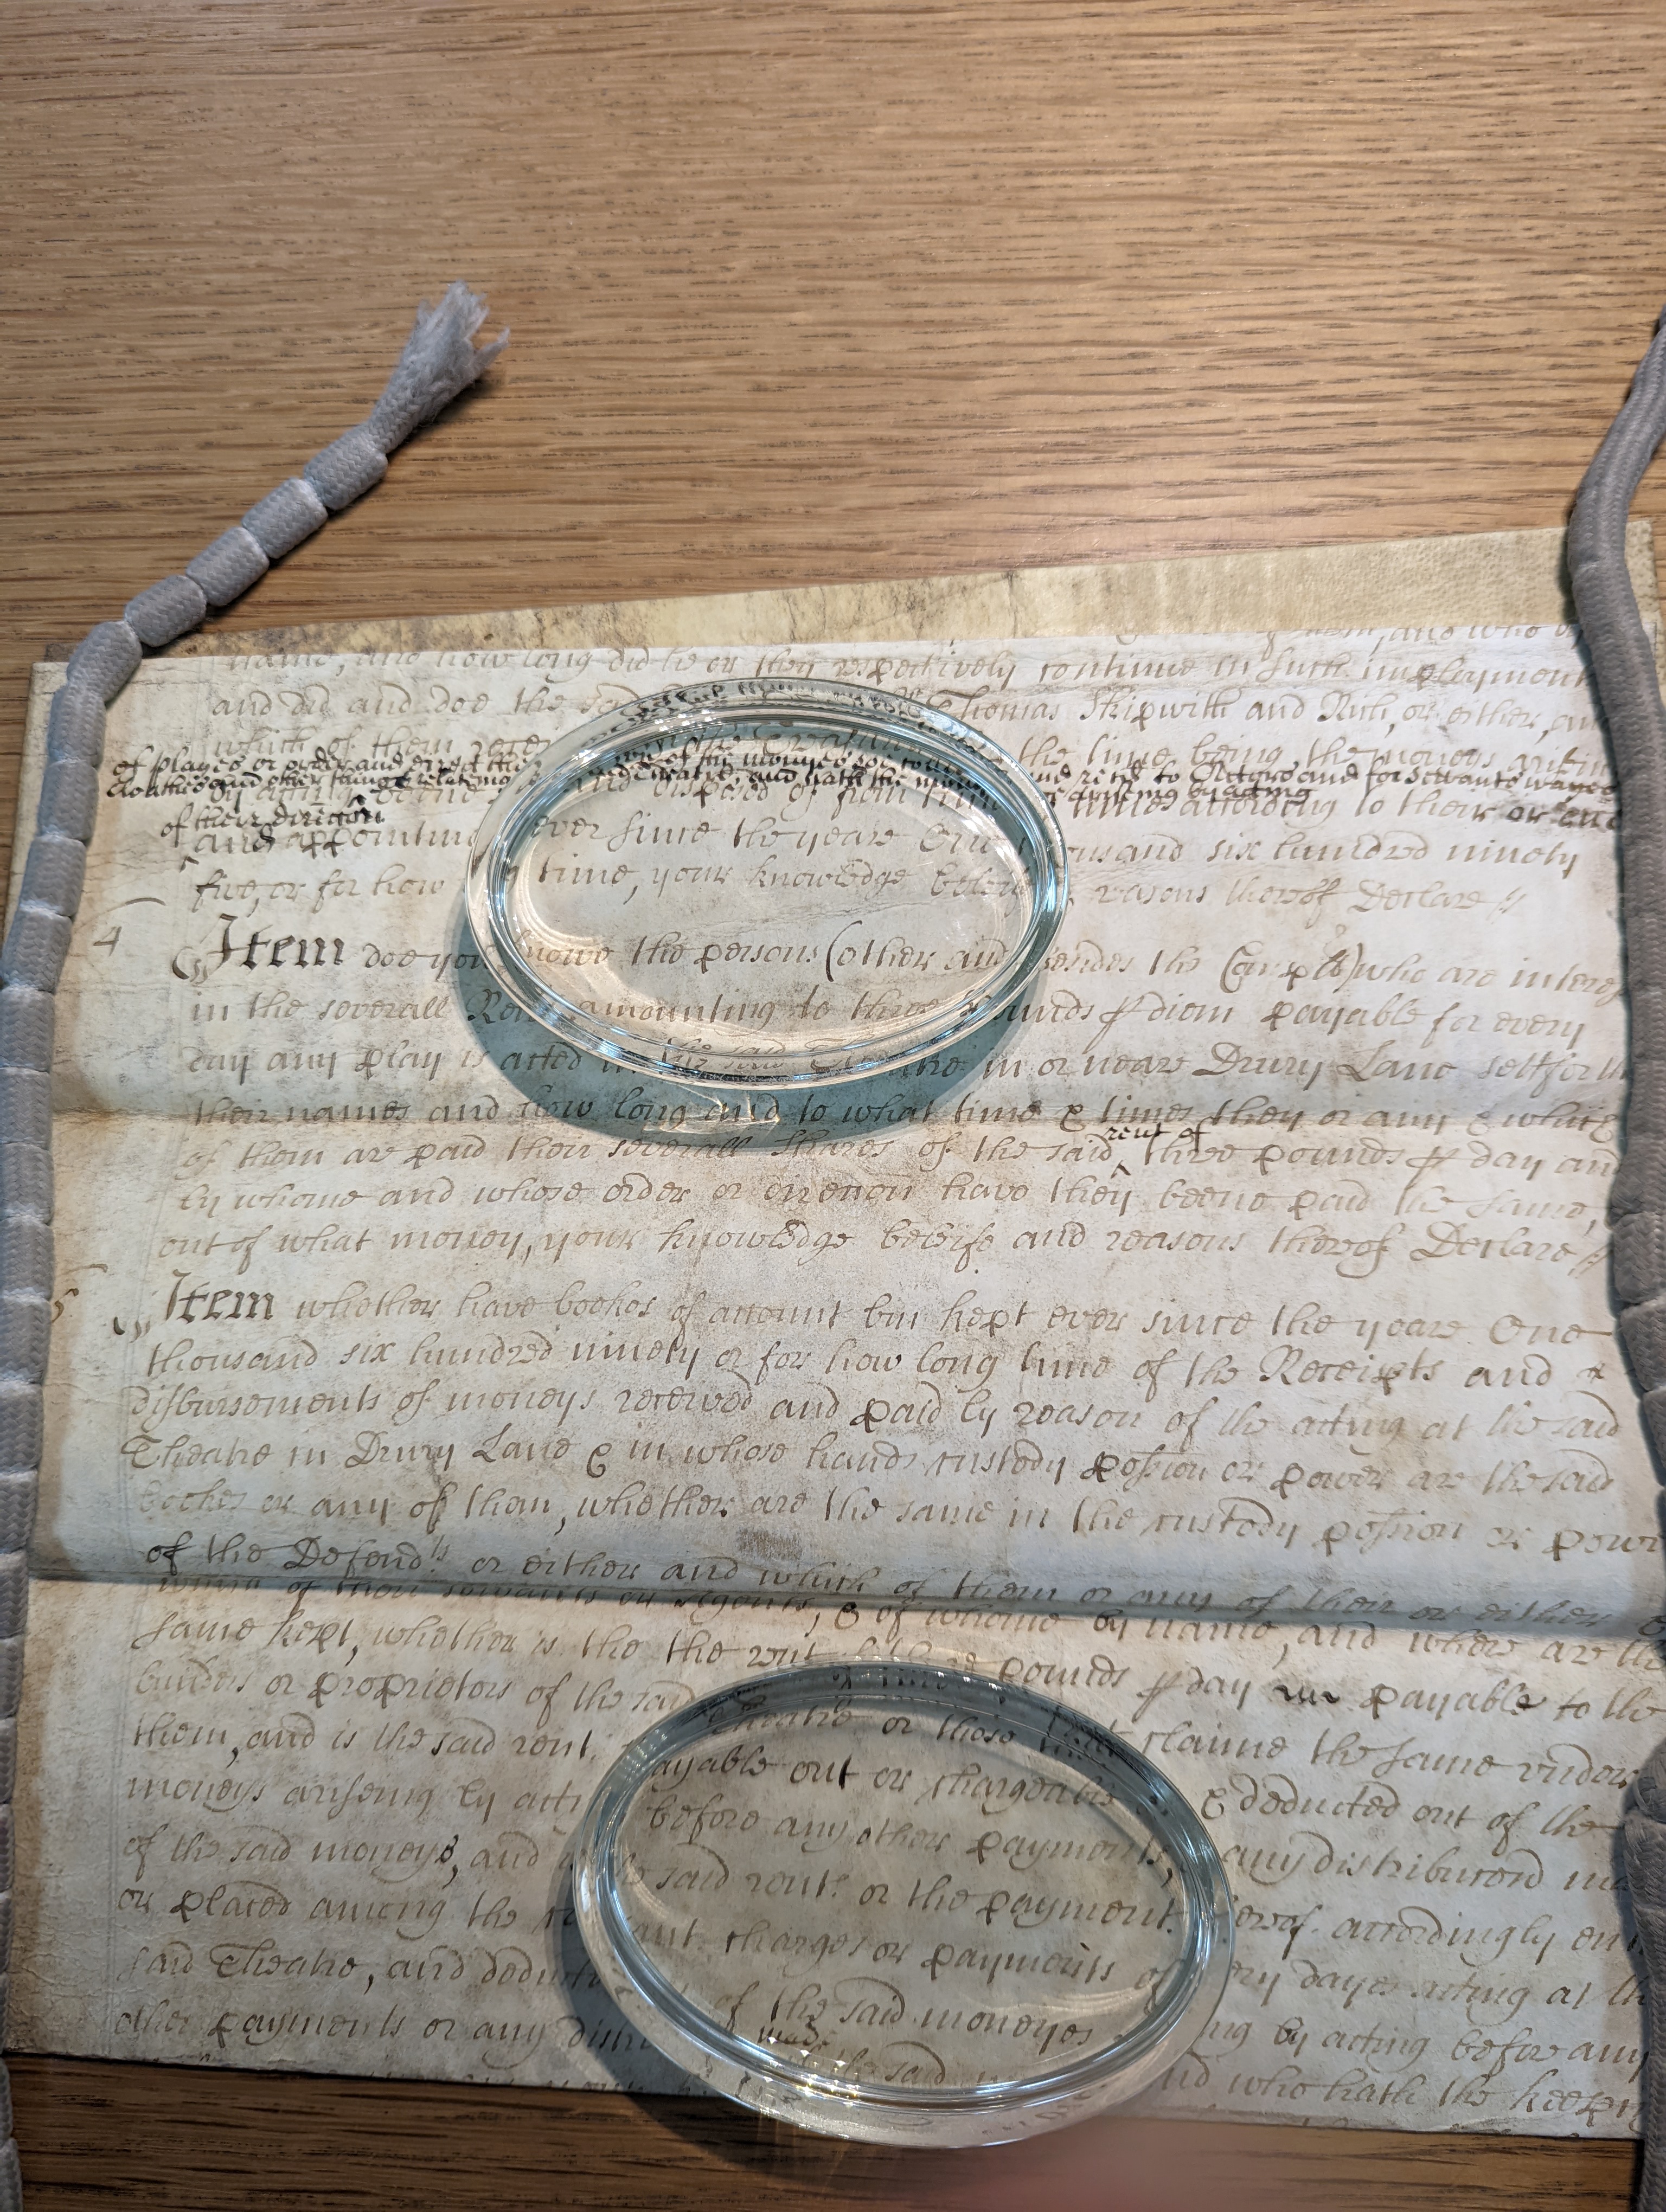 name, and how long did he or they respectively continue in such imployment
and did and doe the said Thomas Skipwith and Rich, or either, and
which of them the time being the moneys
of playes or and rent to Actors and for servants wages
cloathes and other things relateing and Theatre, and hath the arising by acting
and disposed of from time times according to their or
of their direction
and appointm ever since the yeare One thousand six hundred ninety
five, or for how time, your knowledge reasons thereof Declare
4
Item doe you knowe the persons (other and besides the Complts) who are interes
in the severall Rent amounting to three pounds p diem payable for every
day any play is acted in the said Theatre in or neare Drury Lane settforth
their names and how long and to what time & times they or any & which
rent of
of them are paid their severall shares of the said three pounds p day and
by whome and whose order or have they beene paid the same,
out of what money, your knowledge beleife and reasons thereof Declare
5
Item whether have bookes of account bin kept ever since the yeare One
thousand six hundred ninety or for how long time of the Receipts and
disbursements of moneys received and paid by reason of the acting at the said
Theatre in Drury Lane & in whose hands custody possion or power are the said
bookes or any of them, whether are the same in the custody possion or power
of the Defendts or either and which of them or any of their or either
which of their servants or Agents, & of whome by name, and where are the
same kept, whether is the the rent of three pounds p day payable to the
builders or proprietors of the said Theatre or those that claime the same under
them, and is the said rent payable out or chargeable & deducted out of the
moneys ariseing by acting before any other payments, any distribucon
of the said moneys, and the said rent or the payment thereof accordingly
or placed among the charges or payments of every dayes acting at the
said Theatre, and deducted of the said moneyes ing by acting before any
made
other payments or any the said and who hath the keeping